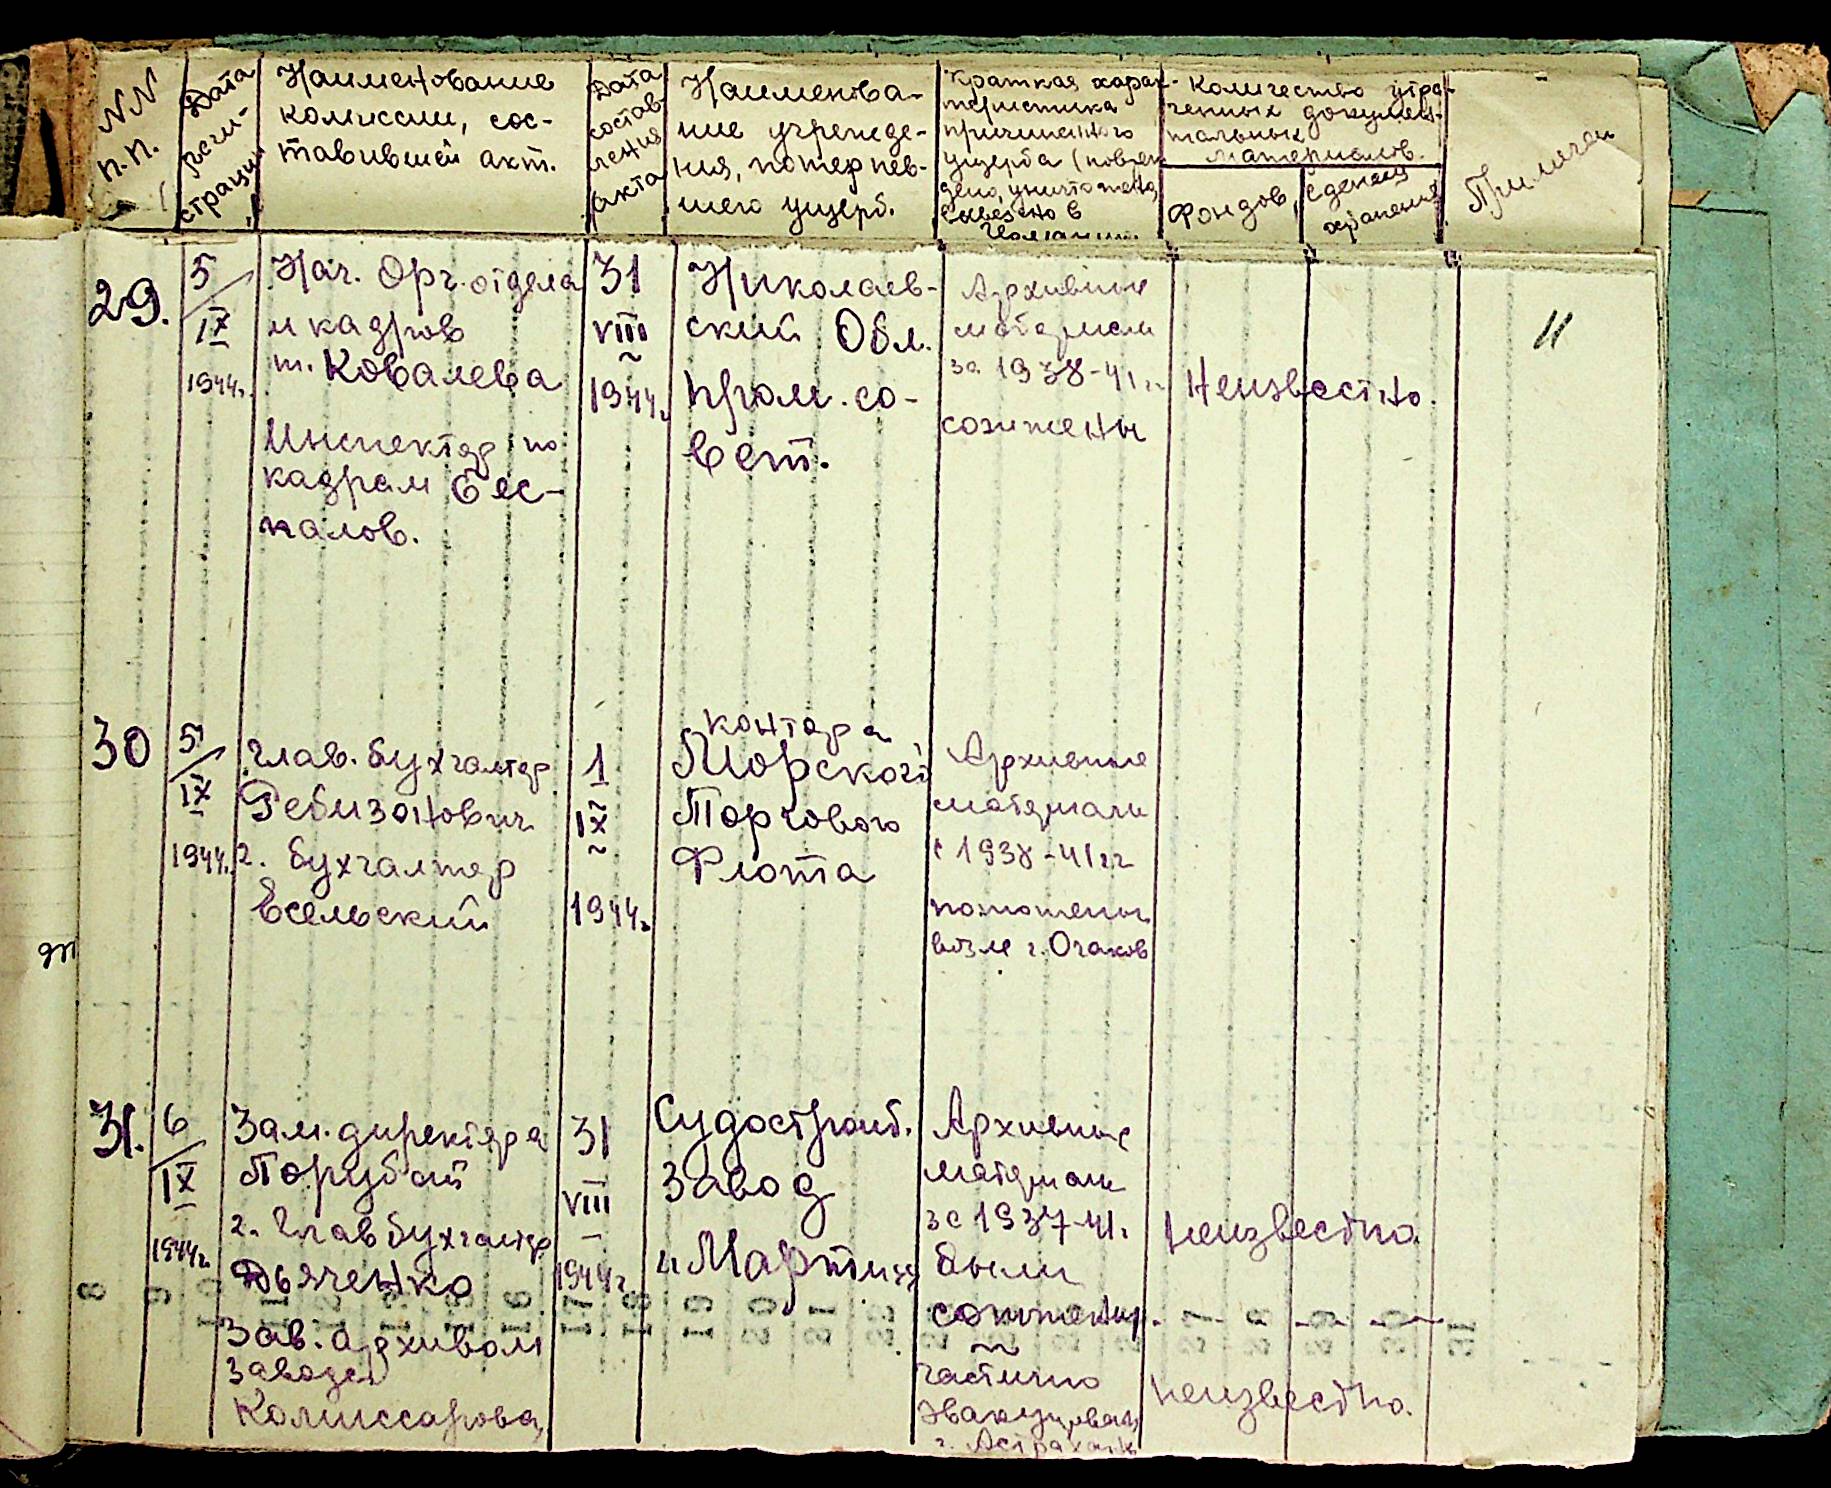 NN
п.п.
Дата
реги-
страции
Наименование
комиссии, сос-
тавившей акт.
Дата
состав-
ления
акта
Наименова-
ние учрежде-
ния, потерпев-
шего ущерб.
Краткая харак-
теристика
причиненного
ущерба (повреж-
дено, уничтожено,
вывезено в
Количество утра-
ченных докумен-
тальных
материалов.
Фондов,
единиц
хранения
Примечан
29.
5
IX
1944г.
Нач. Орг. отдела
и кадров
т. Ковалева
Инспектор по
кадрам Бес-
палов.
31
VIII
1944г.
Николаев-
ский Обл.
пром. со-
вет.
Архивные
материалы
за 1938-41гг
сожжены
Неизвестно.
11
30
5
IX
1944г.
Глав. бухгалтер
Ребизонович
2. бухгалтер
Есельский
1
IX
1944г.
контора
Морского
Торгового
Флота
Архивные
материалы
с 1938-41гг
потоплены
возле г. Очаков
31.
6
IX
1944г.
Зам. директора
Порубай
2. Глав бухгалтер
Дьяченко
Зав. архивом
завода
Комиссарова,
31
VIII
1944г.
Судостроит.
Завод
"Марти"
Архивные
материалы
за 1937-41г.
были
сожжены.
частично
эвакуирован
г. Астрахань
неизвестно
неизвестно.